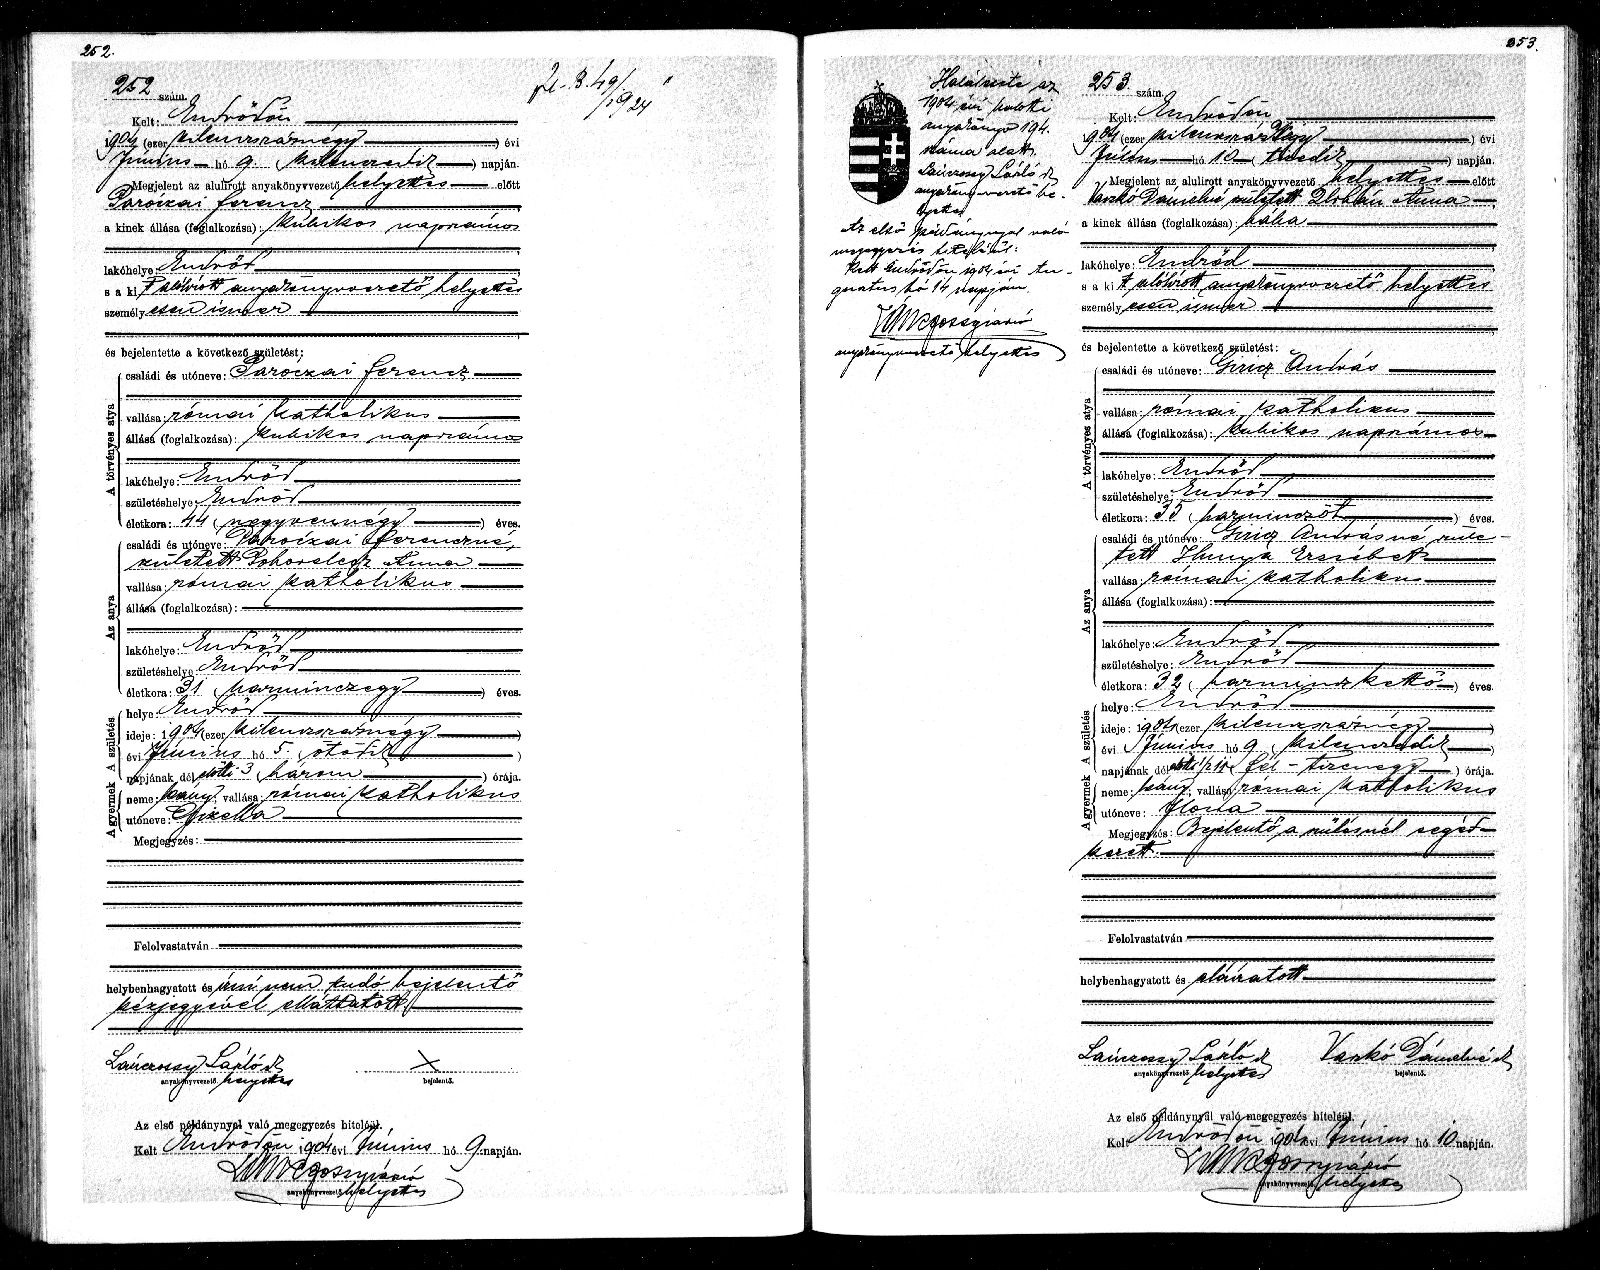 252.
252 szám.
Kelt: Endrődön
1904 (ezer kilenczszáznégy) évi
Június hó 9. (kilenczedik) napján.
Megjelent az alulirott anyakönyvvezető helyettes előtt
Paróczai Ferencz
a kinek állása (foglalkozása): kubikos napszámos
lakóhelye: Endrőd
s a kit alólirott anyakönyvvezető helyettes
személyesen ismer
és bejelentette a következő születést:
A törvényes atya
családi és utóneve: Paróczai Ferencz
vallása: római katholikus
állása (foglalkozása): kubikos napszámos
lakóhelye: Endrőd
születéshelye: Endrőd
életkora: 44 (negyvennégy) éves.
Az anya
családi és utóneve: Paróczai Ferenczné,
született Anna
vallása: római katholikus
állása (foglalkozása):
lakóhelye: Endrőd
születéshelye: Endrőd
életkora: 31 (harminczegy) éves.
A születés
helye: Endrőd
ideje: 1904 (ezer kilenczszáznégy)
évi Június hó 5. (ötödik)
napjának dél előtti 3 (három) órája.
A gyermek
neme: leány; vallása: római katholikus
utóneve: Gizella
Megjegyzés:
Felolvastatván
helybenhagyatott és irni nem tudó bejelentő
kézjegyével elláttatott
Lánczossy László sk
anyakönyvvezető helyettes
X
bejelentő.
Az első példánynyal való megegyezés hiteléül.
Kelt Endrődön 1904 évi Június hó 9. napján.
anyakönyvvezető helyettes
253.
Haláleste az
1904 évi halotti
anyakönyv 194.
száma alatt.
Lánczossy László sk
anyakönyvvezető he-
lyettes
Az első példánynyal való
megegyezés hiteléül:
Kelt Endrődön 1904 évi Au-
gusztus hó 14 napján.
anyakönyvvezető helyettes
253. szám.
Kelt: Endrődön
1904 (ezer kilenczszáznégy) évi
Június hó 10 (tizedik) napján.
Megjelent az alulirott anyakönyvvezető helyettes előtt
Vaskó Dánielné, született Anna
a kinek állása (foglalkozása): bába
lakóhelye: Endrőd
s a kit alólirott anyakönyvvezető helyettes
személyesen ismer
és bejelentette a következő születést:
A törvényes atya
családi és utóneve: Giricz András
vallása: római katholikus
állása (foglalkozása): kubikos napszámos
lakóhelye: Endrőd
születéshelye: Endrőd
életkora: 35 (harminczöt) éves.
Az anya
családi és utóneve: Giricz Andrásné szüle-
tett Hunya Erzsébet
vallása: római katholikus
állása (foglalkozása):
lakóhelye: Endrőd
születéshelye: Endrőd
életkora: 32 (harminczkettő) éves.
A születés
helye: Endrőd
ideje: 1904 (ezer kilenczszáznégy)
évi Június hó 9. (kilenczedik)
napjának dél előtti 1/2 11 (fél-tizenegy) órája.
A gyermek
neme: leány; vallása: római katholikus
utóneve: Ilona
Megjegyzés: Bejelentő a szülésnél segéd-
kezett.
Felolvastatván
helybenhagyatott és aláiratott
Lánczossy László sk
anyakönyvvezető helyettes
Vaskó Dánielné sk
bejelentő.
Az első példánynyal való megegyezés hiteléül.
Kelt Endrődön 1904 évi Június hó 10 napján.
anyakönyvvezető helyettes